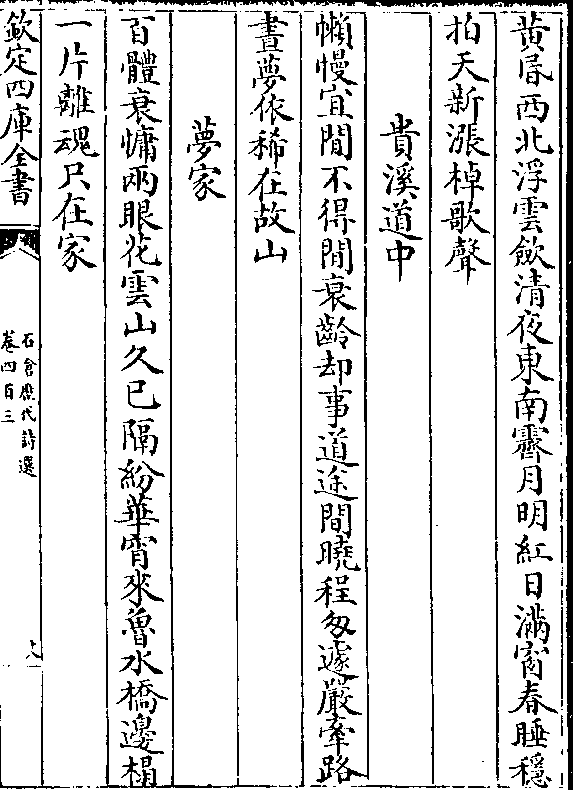 黄昏西北浮雲歛清夜東南霽月明紅日滿窗春睡穩
拍天新漲棹歌聲
貴溪道中
懶慢宜閒不得閒衰齡却事道途間曉程匆遽嚴牽路
晝夢依稀在故山
夢家
百體衰慵兩眼花雲山久已隔紛華宵來魯水橋邊榻
一片離魂只在家
欽定四庫全書
石倉歷代詩選
卷四百三